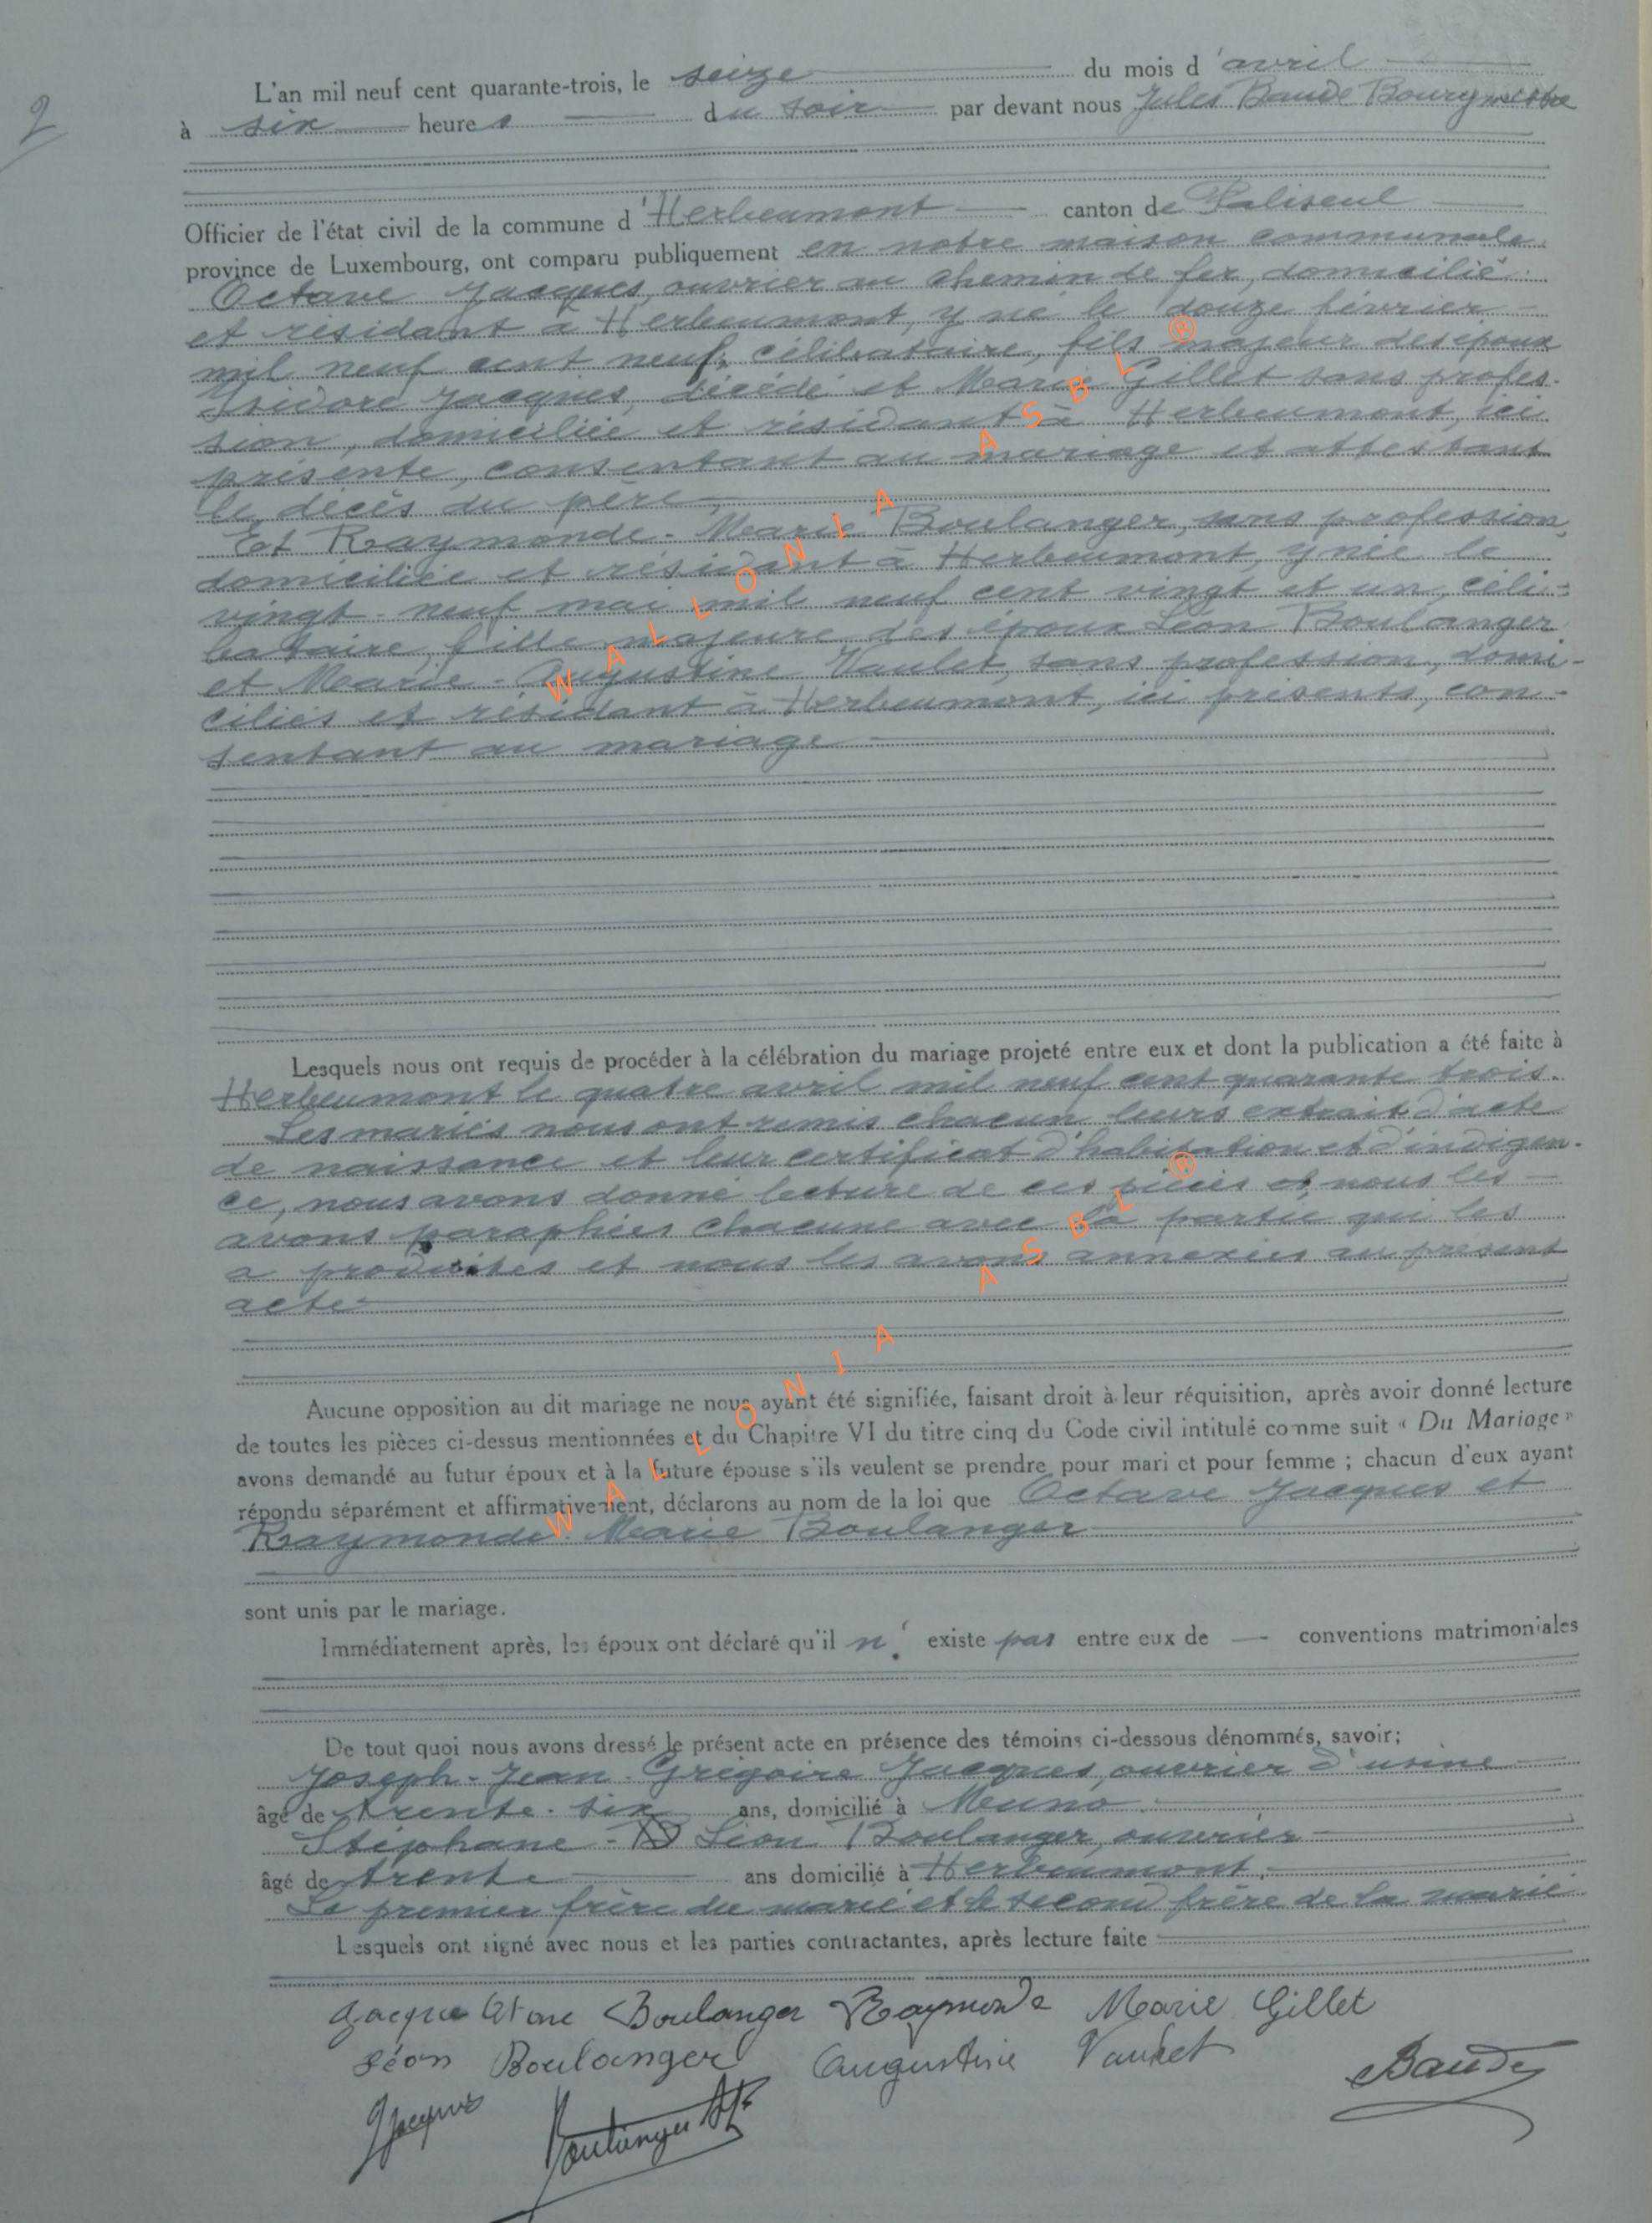 2
L'an mil neuf cent quarante-trois, le seize du mois d'avril
à six heures du soir par devant nous Jules Baude Bourgmestre
Officier de l'état civil de la commune d'Herbeumont canton de Paliseul
province de Luxembourg, ont comparu publiquement en notre maison communale
Octave Jacques, ouvrier au chemin de fer, domicilié
et résidant à Herbeumont, y né le douze février
mil neuf cent neuf, célibataire, fils majeur des époux
Isidore Jacques, décédé et Marie Gillet sans profes-
sion, domiciliée et résidant à Herbeumont, ici
présente, consentant au mariage et attestant
le décès du père
Et Raymonde-Marie Boulanger, sans profession,
domiciliée et résidant à Herbeumont, y née le
vingt-neuf mai mil neuf cent vingt et un, céli-
bataire, fille majeure des époux Léon Boulanger
et Marie-Augustine Vaulet, sans profession, domi-
ciliés et résidant à Herbeumont, ici présents, con-
sentant au mariage
Lesquels nous ont requis de procéder à la célébration du mariage projeté entre eux et dont la publication a été faite à
Herbeumont le quatre avril mil neuf cent quarante trois.
Les mariés nous ont remis chacun leurs extrait d'acte
de naissance et leur certificat d'habitation et d'indigen-
ce, nous avons donné lecture de ces pièces et nous les
avons paraphées chacune avec la partie qui les
a produites et nous les avons annexées au présent
acte
Aucune opposition au dit mariage ne nous ayant été signifiée, faisant droit à leur réquisition, après avoir donné lecture
de toutes les pièces ci-dessus mentionnées et du Chapitre VI du titre cinq du Code civil intitulé comme suit « Du Mariage »
avons demandé au futur époux et à la future épouse s'ils veulent se prendre pour mari et pour femme ; chacun d'eux ayant
répondu séparément et affirmativement, déclarons au nom de la loi que Octave Jacques et
Raymonde-Marie Boulanger
sont unis par le mariage.
Immédiatement après, les époux ont déclaré qu'il n'existe pas entre eux de conventions matrimoniales
De tout quoi nous avons dressé le présent acte en présence des témoins ci-dessous dénommés, savoir;
Joseph-Jean-Grégoire Jacques, ouvrier d'usine
âgé de trente-six ans, domicilié à Muno
Stéphane-Léon Boulanger, ouvrier
âgé de trente ans domicilié à Herbeumont,
Le premier frère du marié et le second frère de la marié
Lesquels ont signé avec nous et les parties contractantes, après lecture faite
Jacques Octave Boulanger Raymonde Marie Gillet
Léon Boulanger Augustine Vaulet Baude
Jacques Boulanger St
WALLONIA ASBL ®
WALLONIA ASBL ®